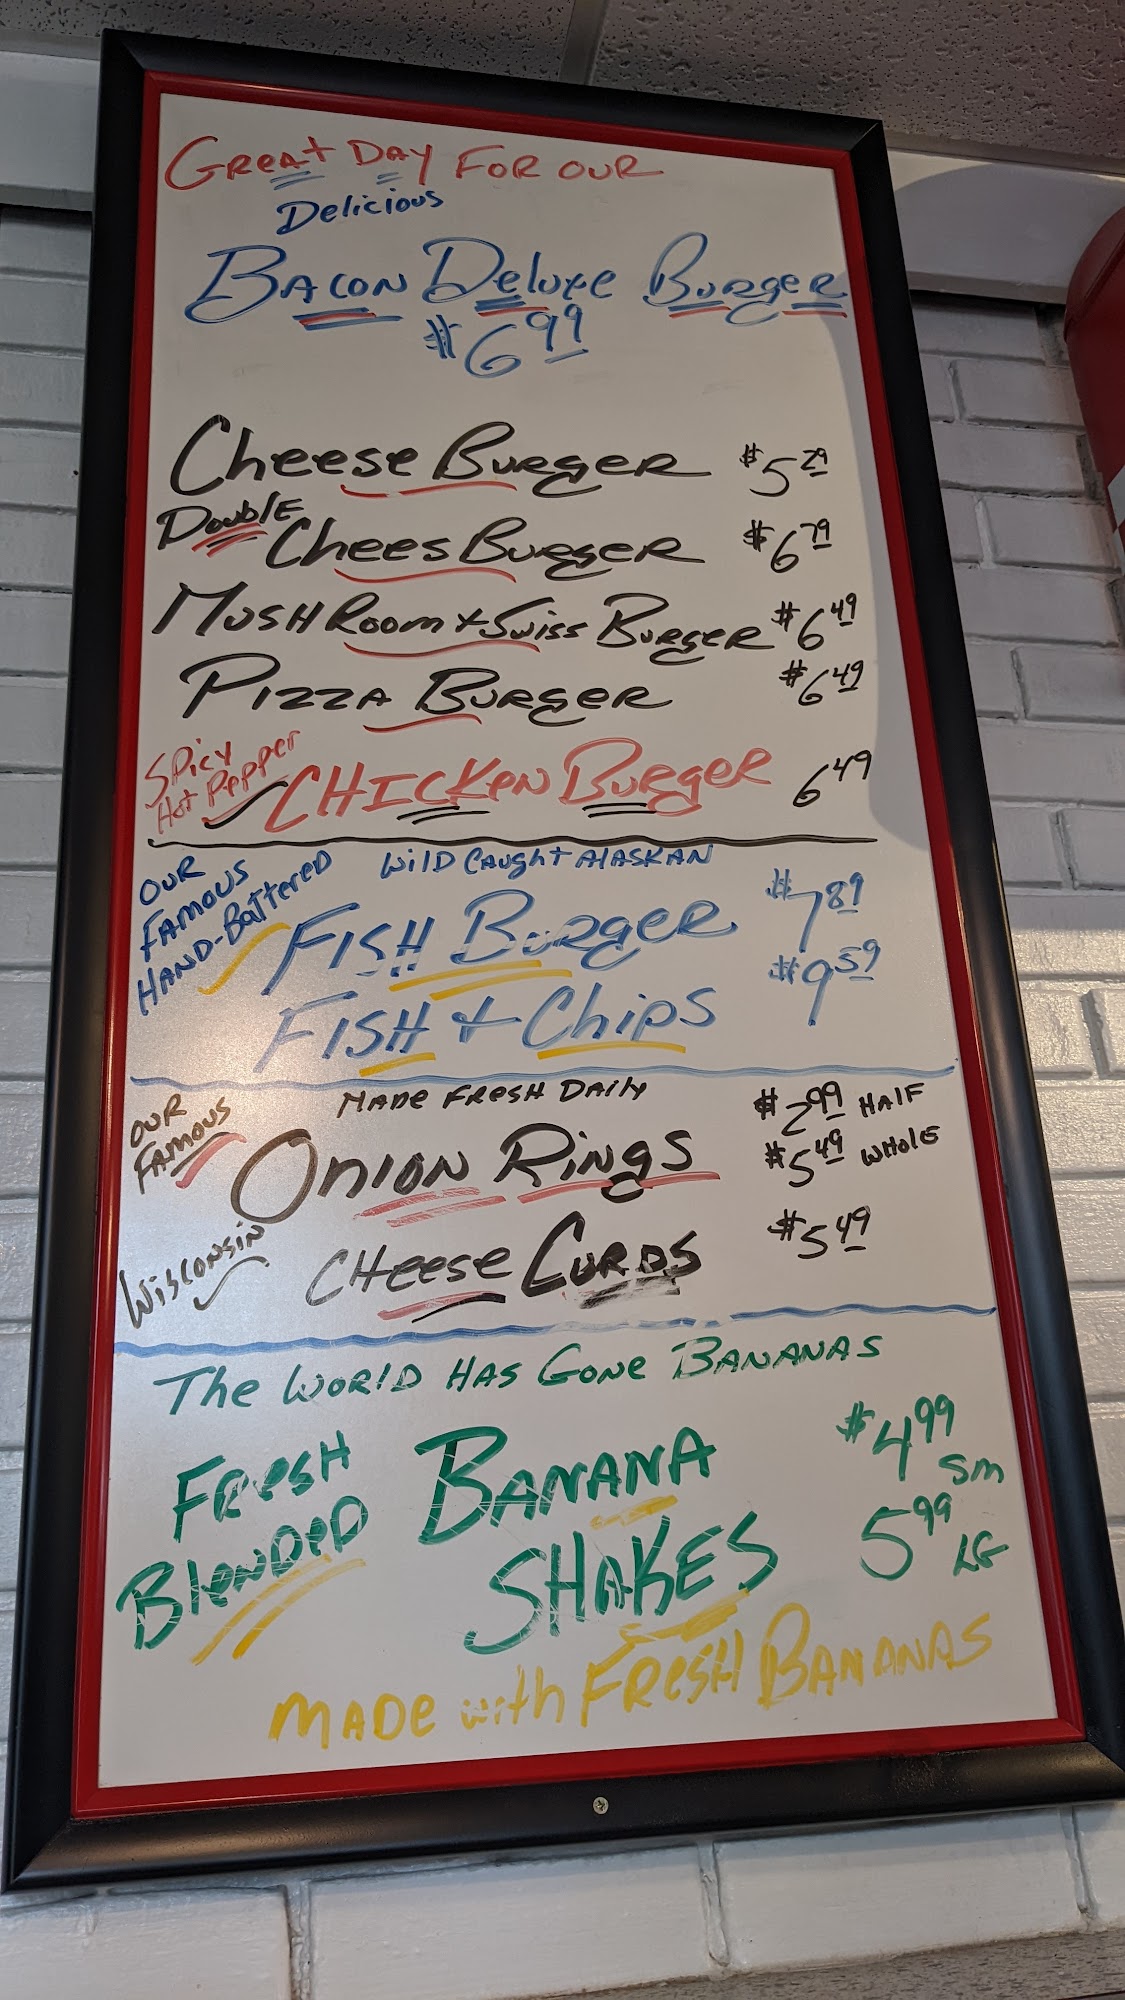 Great Day For our
Delicious
Bacon Deluxe Burger
$6.99
Cheese Burger $5.29
Double Chees Burger $6.79
Mushroom + Swiss Burger $6.49
Pizza Burger $6.49
Spicy Hot Pepper Chicken Burger 6.49
Our Famous Hand-Battered
Wild Caught Alaskan
Fish Burger $7.89
Fish + Chips $9.59
Our Famous
Made Fresh Daily
Onion Rings $2.99 Half
$5.49 Whole
Wisconsin Cheese Curds $5.49
The World Has Gone Bananas
Fresh Blended
Banana $4.99 Sm
Shakes 5.99 LG
Made with Fresh Bananas